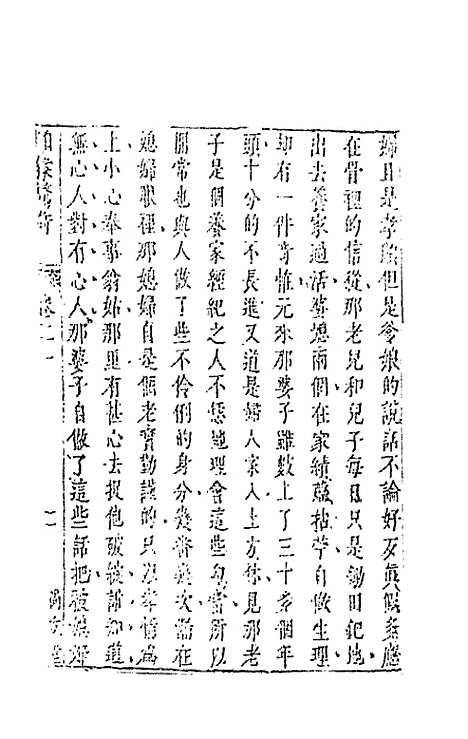 婦且是孝順但是爹娘的說話不論好歹眞假多應
在骨裡的信從那老兒和兒子每日只是鋤田鈀地
出去養家過活婆媳兩個在家績蔴拈苧自做生理
却有一件奇怪元來那婆子雖數上了三十多個年
頭十分的不長進又道是婦人家入土方休見那老
子是個養家經紀之人不恁地理會這些勾當所以
閒常也與人做了些不伶俐的身分幾番幾次漏在
媳婦眼裡那媳婦自是個老實勤謹的只以孝情爲
上小心奉事翁姑那里有甚心去捉他破綻誰知道
無心人對有心人那婆子自做了這些話把被媳婦
拍案驚奇 卷之二